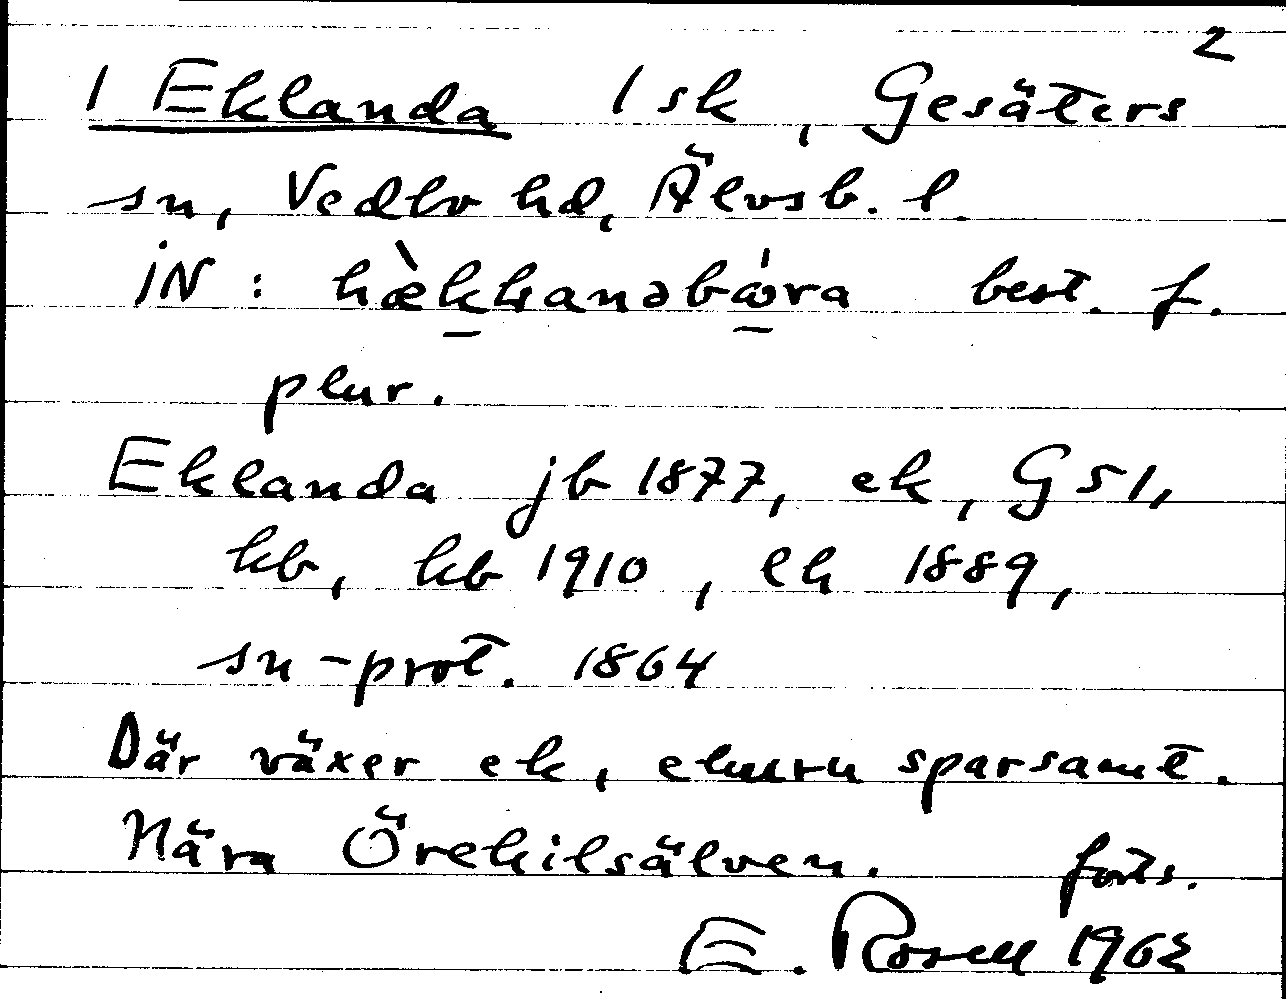 2
1 Eklanda 1 sk, Gesäters
sn, Vedbo hd, Älvsb. l.
iN : hæ̀kkanəbǻra best. f.
plur.
Eklanda jb 1877, ek, G51,
kb, hb 1910, eh 1889,
sn-prot. 1864
Där växer ek, ehuru sparsamt.
Nära Örekilsälven. forts.
E. Rosell 1963